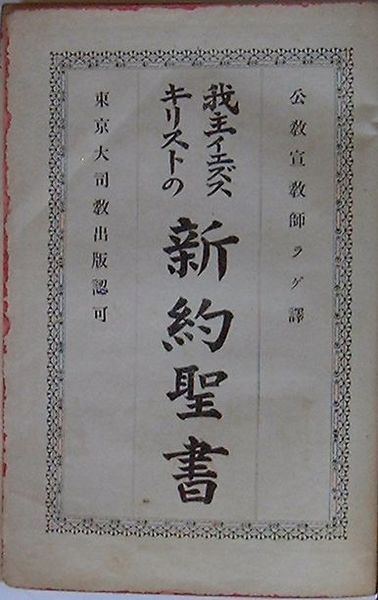 公教宣教師ラゲ譯
我主イエズス
キリストの
新約聖書
東京大司教出版認可